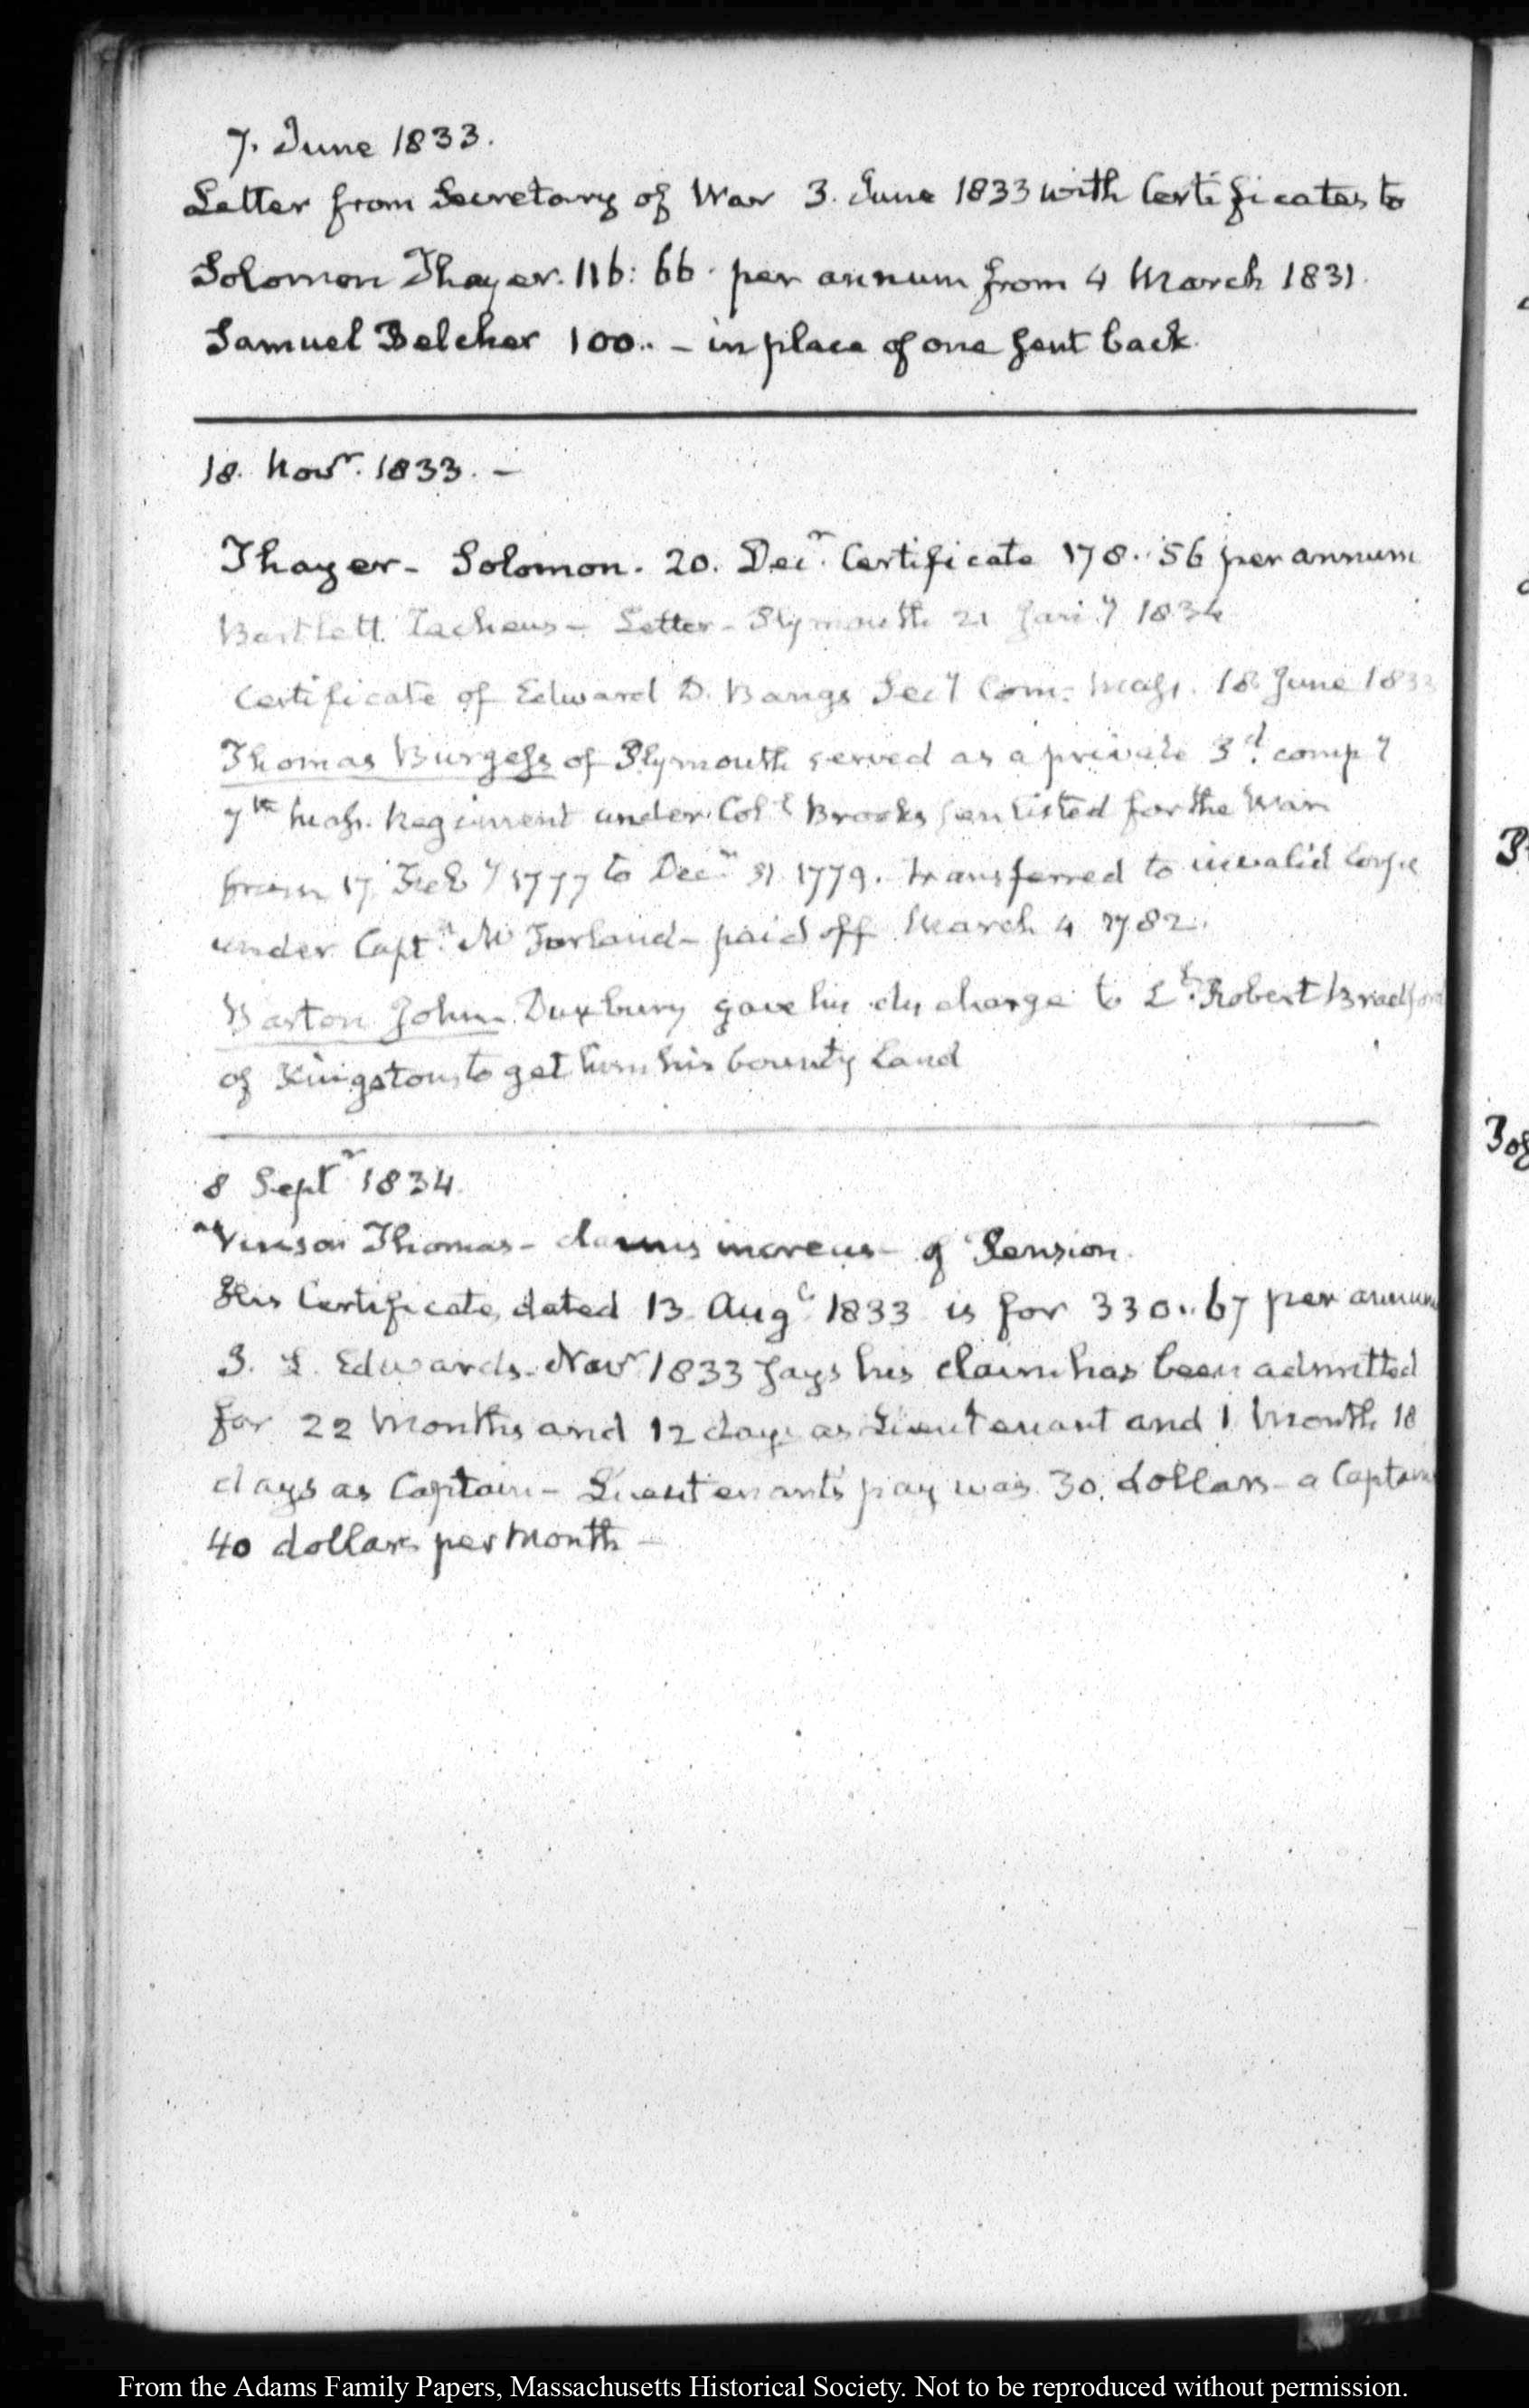 7. June 1833.
Letter from Secretary of War 3. June 1833 with Certificates to
Solomon Thayer. 116: 66. per annum from 4 March 1831.
Samuel Belcher 100.. – in place of one sent back.
18. Novr. 1833. –
Thayer – Solomon. 20. Decr. Certificate 178..56 per annum
Bartlett. Zacheus – Letter – Plymouth 21 Jany 1834
Certificate of Edward D. Bangs Secy Com: Mass. 18 June 1833
Thomas Burgess of Plymouth served as a private 3d. compy
7th Mass. Regiment under Coll Brooks, enlisted for the War
from 17 Feby 1777 to Decr 31 1779. transferred to invalid Corps
under Captn. McFarland – paid off March 4 1782.
Barton John Duxbury gave his discharge to Lt. Robert Bradford
of Kingston, to get him his bounty Land
8 Septr 1834.
Vinson Thomas – claims increase of Pension.
His Certificate, dated 13. Augt 1833 is for 330..67 per annum
J. L. Edwards. Novr 1833 says his claim has been admitted
for 22 Months and 12 days as Lieutenant and 1 Month 18
days as Captain – Lieutenants pay was 30. dollars – a Captains
40 dollars per Month –
From the Adams Family Papers, Massachusetts Historical Society. Not to be reproduced without permission.